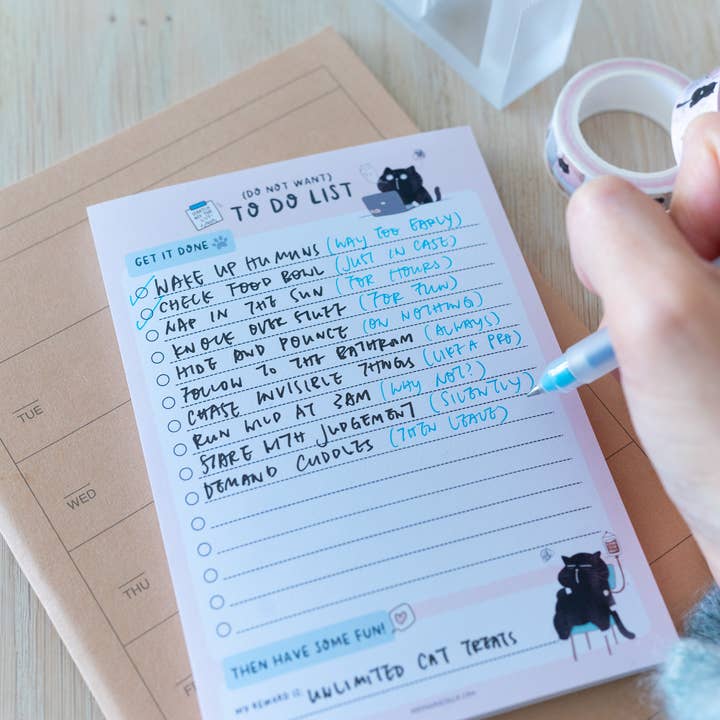 (DO NOT WANT)
TO DO LIST
GET IT DONE
WAKE UP HUMANS (WAY TOO EARLY)
CHECK FOOD BOWL (JUST IN CASE)
NAP IN THE SUN (FOR HOURS)
KNOCK OVER STUFF (FOR FUN)
HIDE AND POUNCE (ON NOTHING)
FOLLOW TO THE BATHROOM (ALWAYS)
CHASE INVISIBLE THINGS (LIKE A PRO)
RUN WILD AT 3AM (WHY NOT?)
STARE WITH JUDGEMENT (SILENTLY)
DEMAND CUDDLES (THEN LEAVE)
THEN HAVE SOME FUN!
MY REWARD IS: UNLIMITED CAT TREATS
TUE
WED
THU